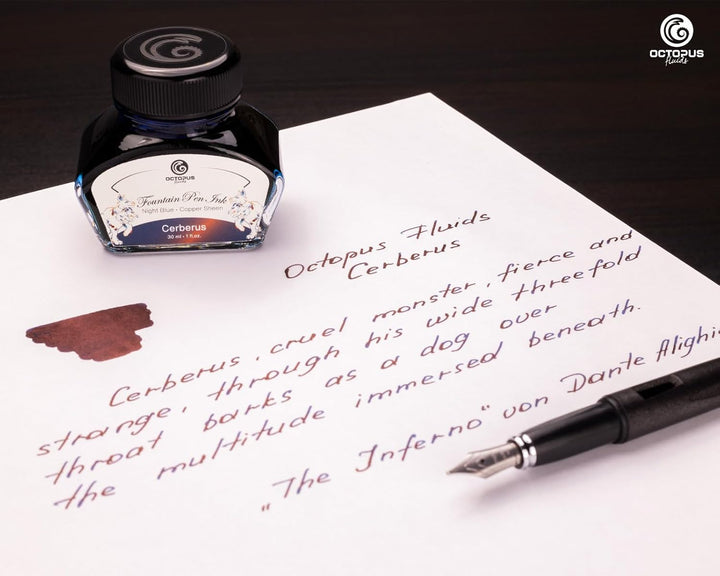 OCTOPUS
fluids
OCTOPUS
fluids
Fountain Pen Ink
Night Blue • Copper Sheen
Cerberus
30 ml • 1 fl.oz.
Octopus Fluids
Cerberus
Cerberus, cruel monster, fierce and
strange, through his wide threefold
throat barks as a dog over
the multitude immersed beneath.
„The Inferno“ von Dante Alighie